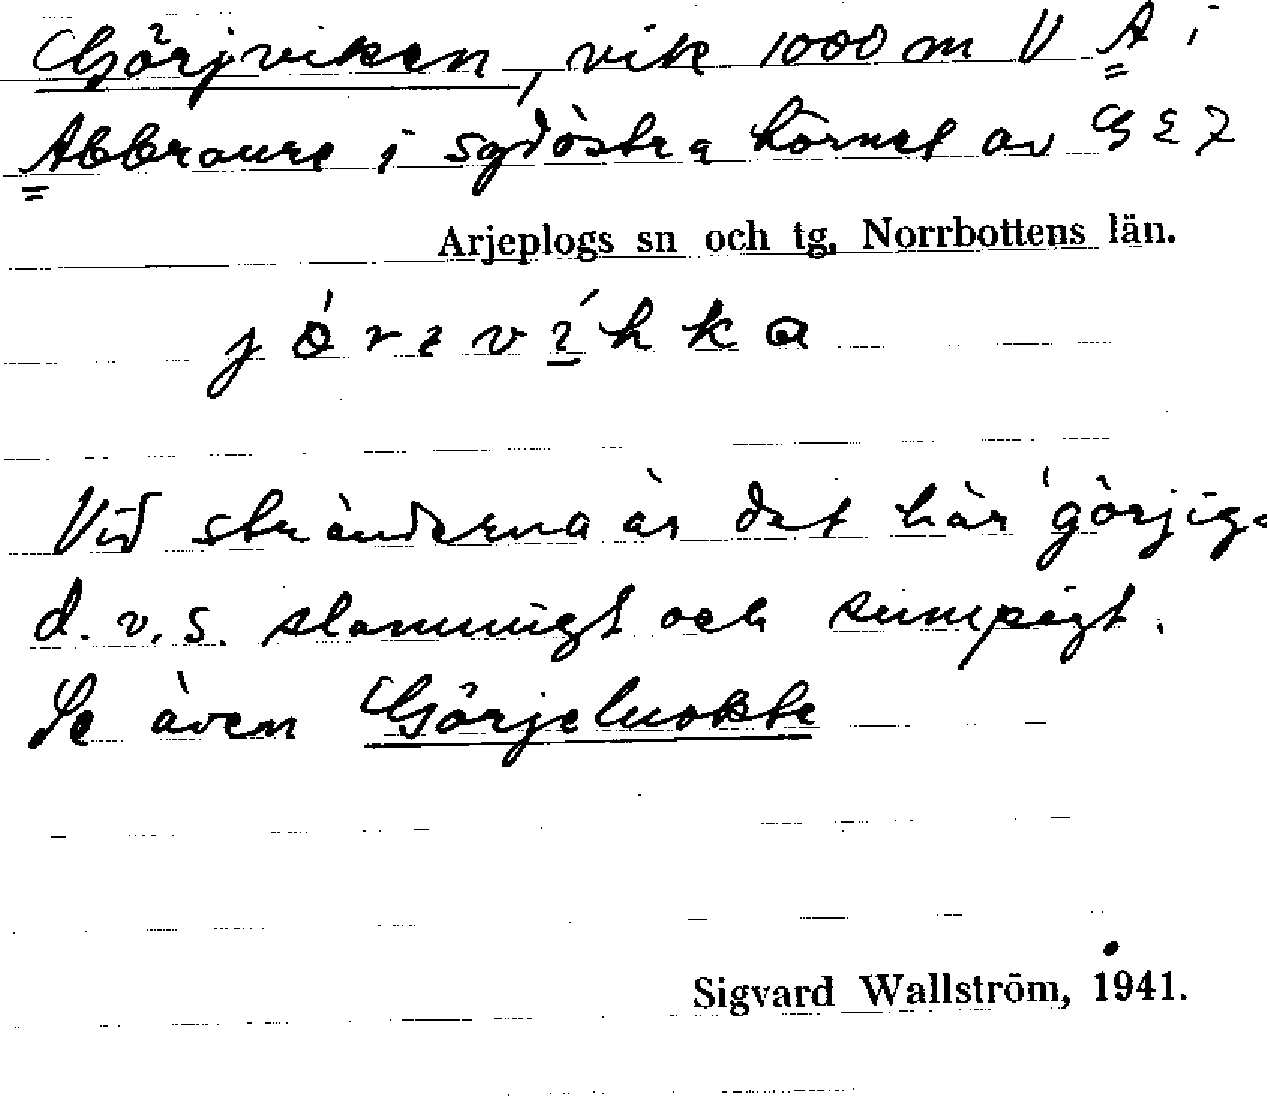 Görjviken, vik 1000 m V A i
Abbraure i sydöstra hörnet av G 2 7
Arjeplogs sn och tg. Norrbottens län.
Vid stränderna är det här 'görjig
d.v.s. slammigt och sumpigt.
Se även Görjeluokte
Sigvard Wallström, 1941.